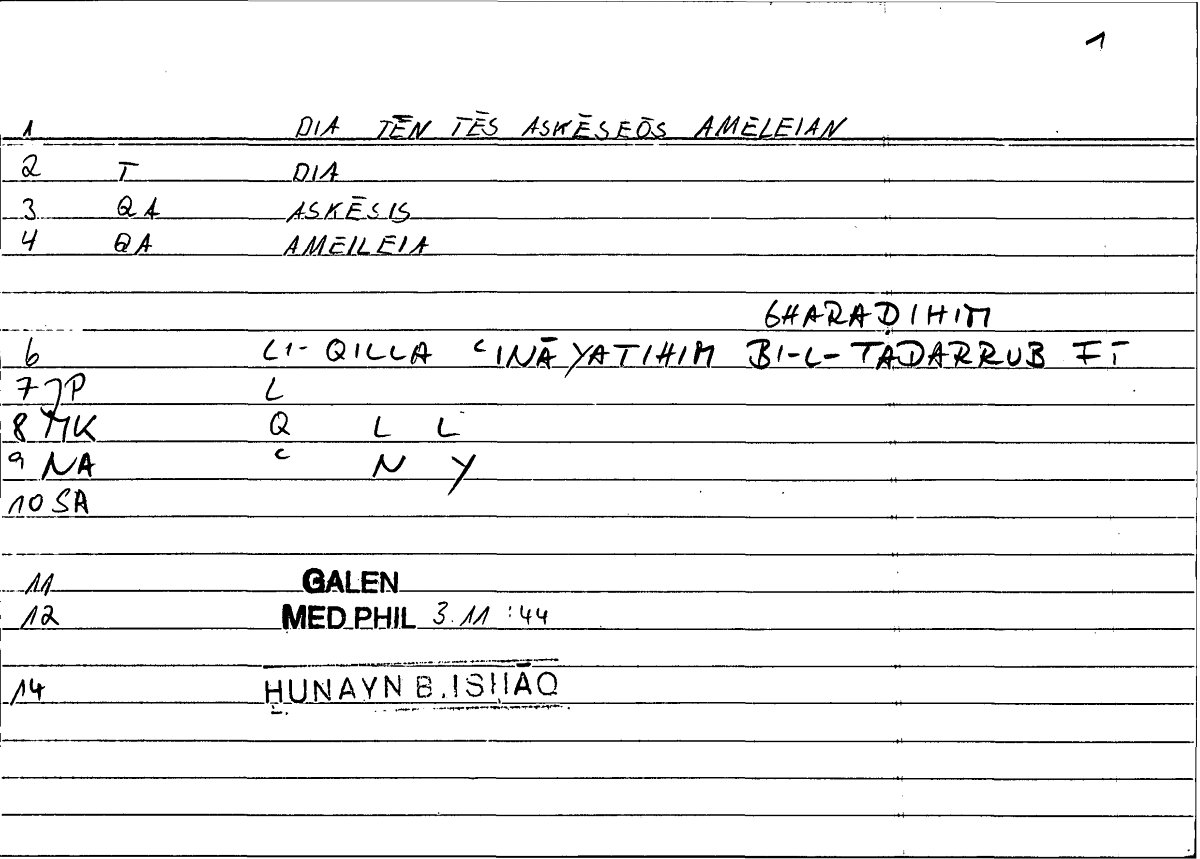 1
1 DIA TĒN TĒS ASKĒSEŌS AMELEIAN
2 T DIA
3 QA ASKĒSIS
4 QA AMEILEIA
GHARAḌIHIM
6 LI-QILLA ʿINĀYATIHIM BI-L-TADARRUB FĪ
7 JP L
8 MK Q L L
9 NA ʿ N Y
10 SA
11 GALEN
12 MED PHIL 3.11 :44
14 ḤUNAYN B. ISḤĀQ